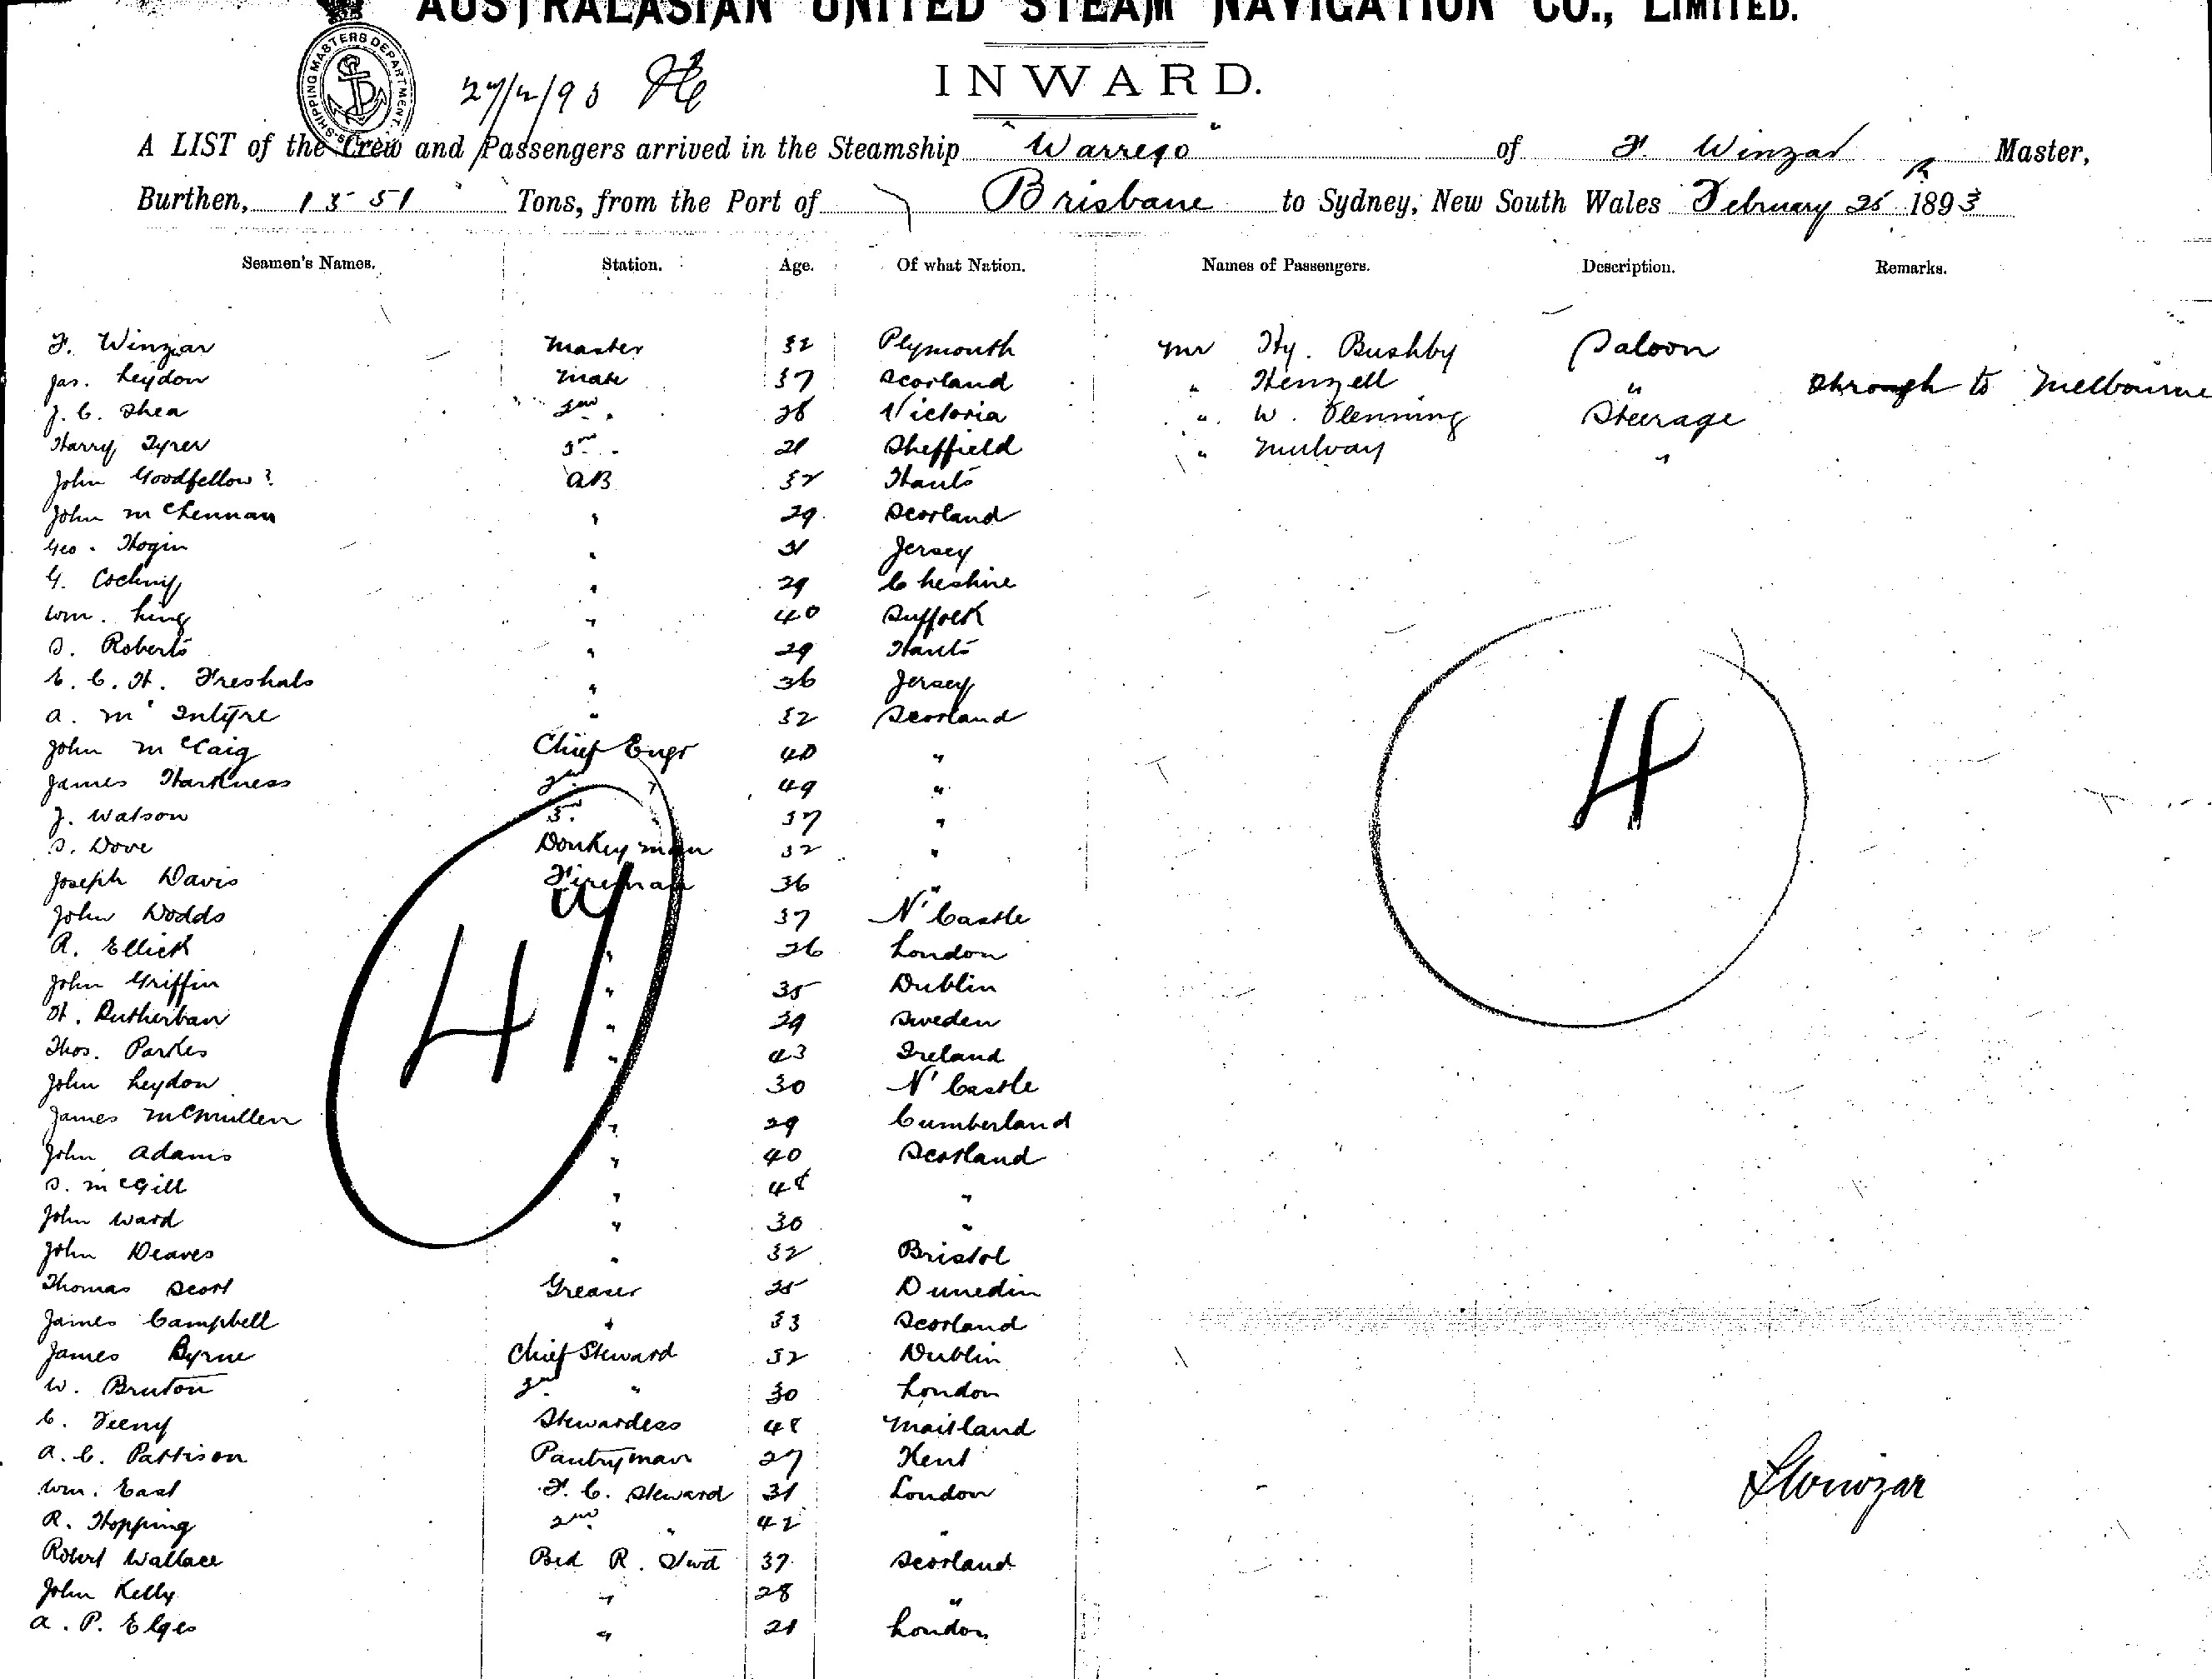 AUSTRALASIAN UNITED STEAM NAVIGATION CO., LIMITED.
SHIPPING MASTERS DEPARTMENT
INWARD.
A LIST of the Crew and Passengers arrived in the Steamship "Warrego" of F. Winzar Master,
Burthen, 1351 Tons, from the Port of Brisbane to Sydney, New South Wales February 25 1893
Seamen's Names. Station. Age. Of what Nation. Names of Passengers. Description. Remarks.
F. Winzar Master 32 Plymouth Mr Hy. Bushby Saloon
Jas. Leydon Mate 37 Scotland " Henzell " Through to Melbourne
J. C. Shea 2nd " 28 Victoria " W. Flenning Steerage
Harry Tyrer 3rd " 21 Sheffield " Mulvay "
John Goodfellow AB 32 Hants
John McLennan " 29 Scotland
Geo. Hogin " 31 Jersey
G. " 29 Cheshire
Wm. " 40 Suffolk
S. Roberts " 29 Hants
E. C. H. " 36 Jersey
A. McIntyre " 32 Scotland
John McCaig Chief Engr 40 "
James Harkness 2nd " 49 "
J. Watson 3rd " 37 "
S. Dove Donkeyman 32 "
Joseph Davis Fireman 36 "
John Dodds 37 N'Castle
R. " 26 London
John Griffin " 35 Dublin
H. " 29 Sweden
Thos. Parkes " 43 Ireland
John Leydon 30 N'Castle
James McMullen " 29 Cumberland
John Adams " 40 Scotland
S. McGill " 48 "
John Ward " 30 "
John Deaves " 32 Bristol
Thomas Scott Greaser 25 Dunedin
James Campbell " 33 Scotland
James Byrne Chief Steward 32 Dublin
W. Bruton 2nd " 30 London
C. Feeny Stewardess 48 Maitland
A. C. Pattison Pantryman 27 Kent
Wm. East F. C. Steward 31 London
R. Hopping 2nd " 42 "
Robert Wallace Bed R. Stwd 37 Scotland
John Kelly " 28 "
A. P. Elges " 21 London
41
4
F Winzar